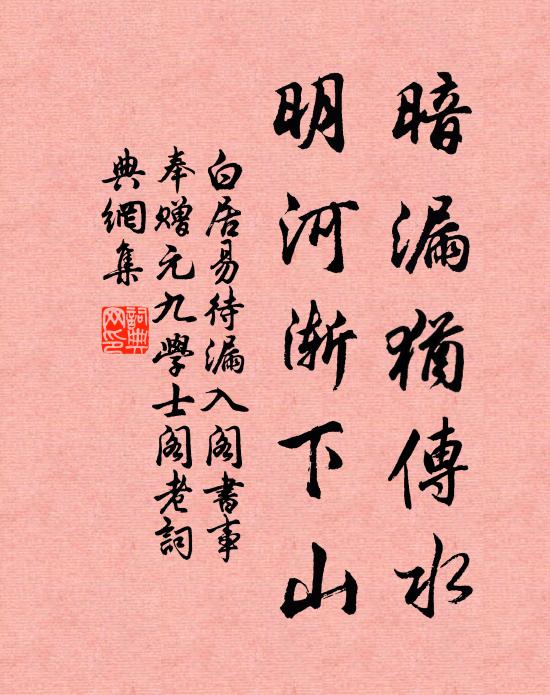 暗漏猶傳水
明河渐下山
白居易待漏入阁書事
奉赠元九學士阁老詞
典網集
詞典网印